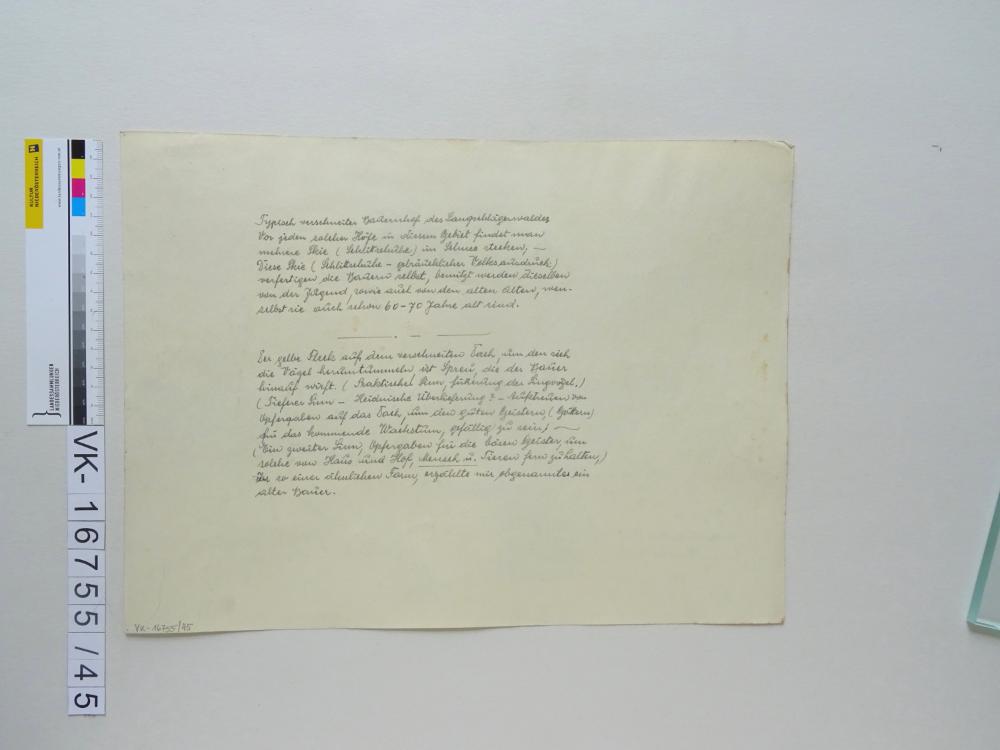 Typisch verschneiter Bauernhof des Langschlägerwaldes
Vor jeden solcher Höfe in diesem Gebiet findet man
mehrere Skie (Schlitschuhe) im Schnee stecken, —
Diese Skie (Schlitschuhe – gebräuchlicher Volksausdruck)
verfertigen die Bauern selbst, benützt werden dieselben
von der Jugend, sowie auch von den alten Alten, wen-
selbst sie auch schon 60–70 Jahre alt sind.
Der gelbe Fleck auf dem verschneiten Dach, um den sich
die Vögel herumtummeln ist Spreu, die der Bauer
hinauf wirft. (Praktischer Sinn, fütterung der Singvögel.)
(Tieferer Sinn – Heidnische Überlieferung? – Aufstreuen von
Opfergaben auf das Dach, um den guten Geistern (Göttern)
für das kommende Wachstum, gefällig zu sein) —
(Ein zweiter Sinn, Opfergaben für die bösen Geister, um
solche von Haus und Hof, Mensch u. Tieren fern zu halten,)
In so einer ähnlichen Form, erzählte mir obgenanntes ein
alter Bauer.
VK-16755/45
VK-16755/45
KULTUR
NIEDERÖSTERREICH
LANDESSAMMLUNGEN
NIEDERÖSTERREICH